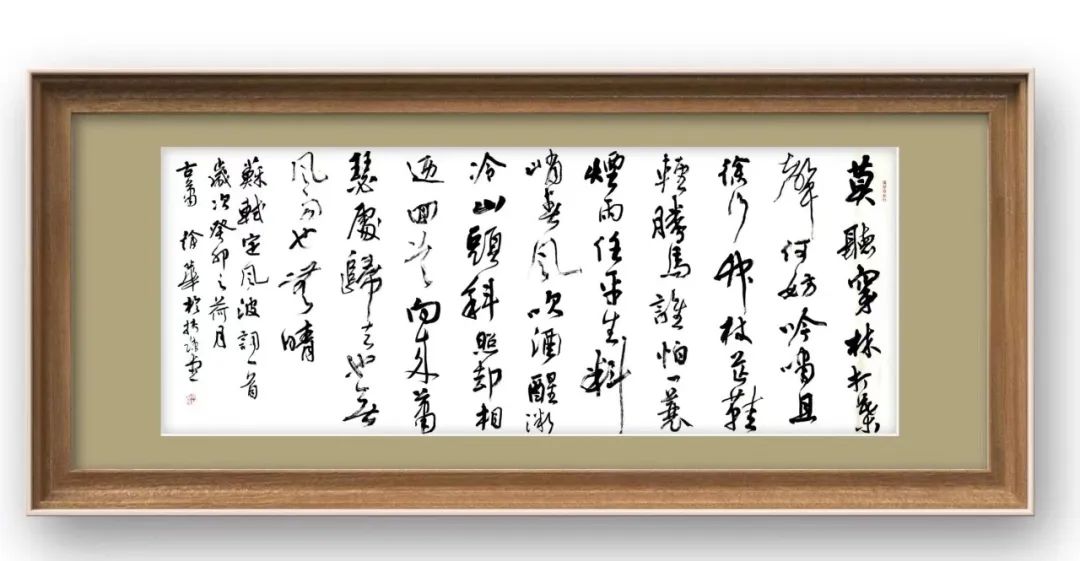 莫聽穿林打葉
聲何妨吟嘯且
徐行竹杖芒鞋
輕勝馬誰怕一蓑
煙雨任平生料
峭春風吹酒醒微
冷山頭斜照却相
迎回首向來蕭
瑟處歸去也無
風雨也無晴
蘇軾定風波詞一首
歲次癸卯之荷月
古蕭徐華於